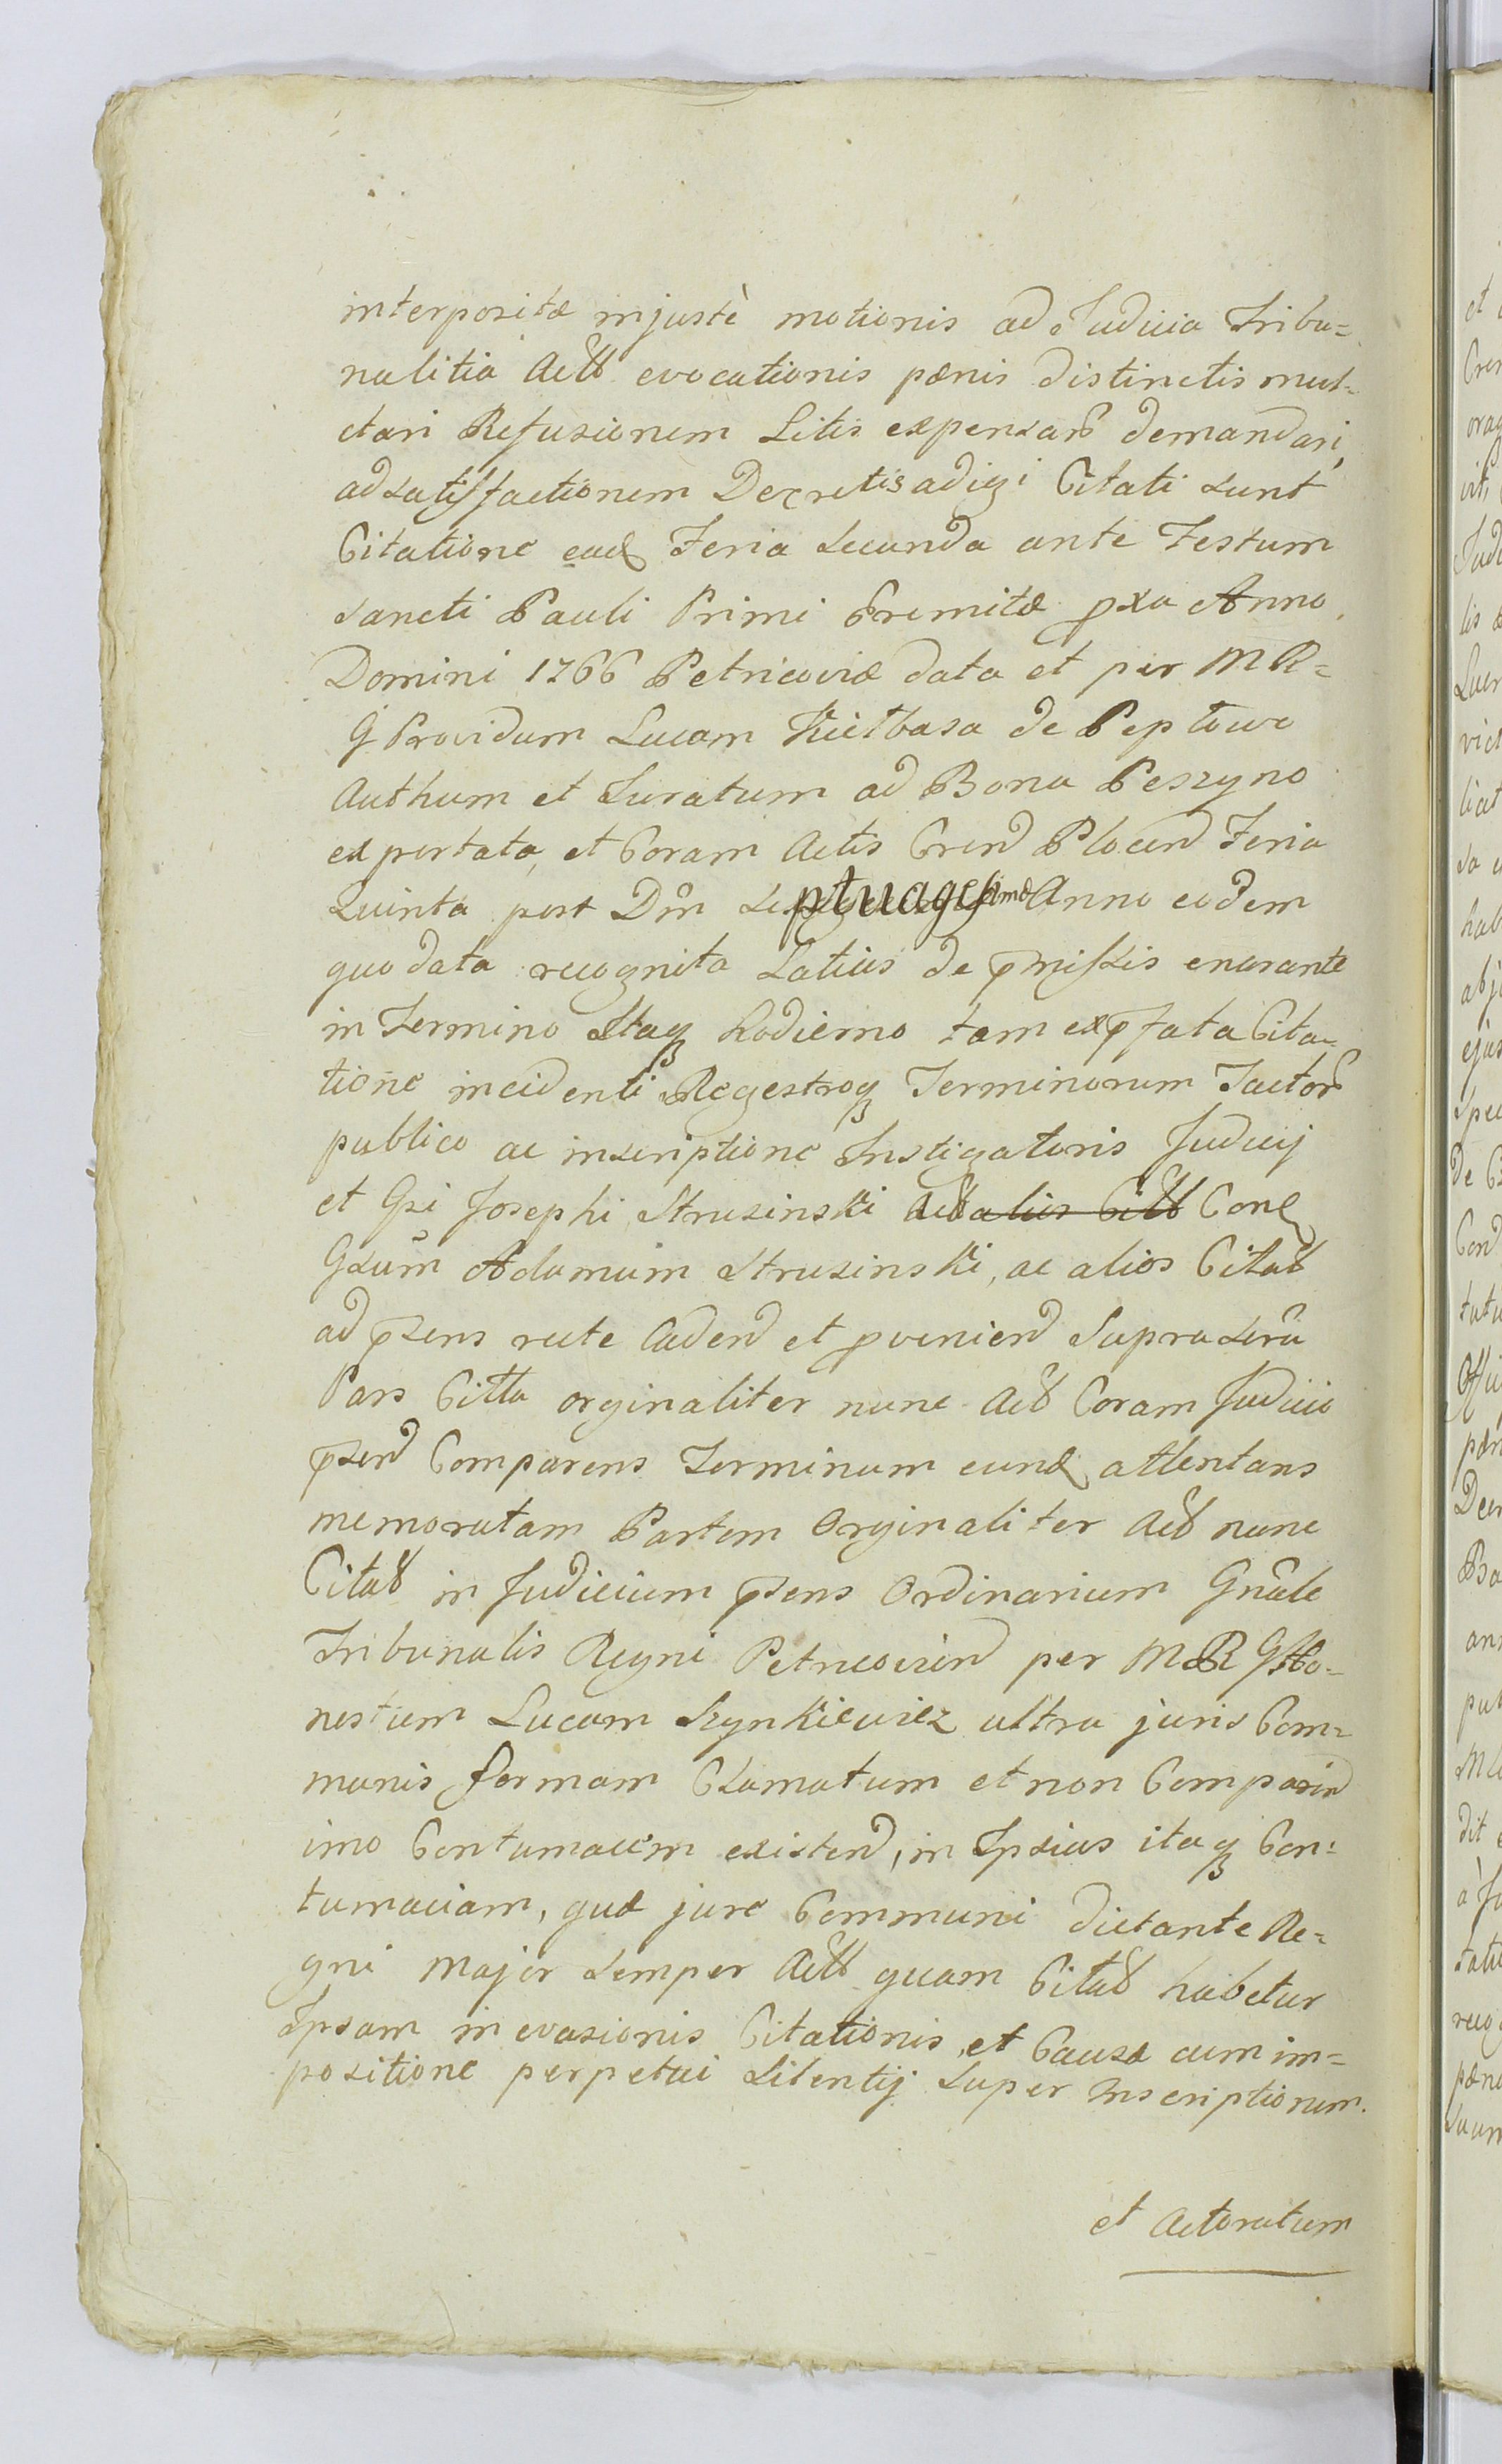 interpositæ injustè motionis ad Judicia Tribu=
nalitia Actt evocationis pænis distinctis mul=
ctari Refusionem Litis expensarũ demandari,
ad satisfactionem Decretis adigi Citati sunt
Citatione ead Feria Secunda ante Festum
Sancti Pauli Primi Eremitæ pxa Anno
Domini 1766 Petricoviæ data et per MR=
G Providum Lucam Kiełbasa de Peptowo
Authum et Juratum ad Bona Peszyno
exportata, et Coram Actis Cren Plocen Feria
Quinta post Dm̃ Septuagesimæ Anno eodem
quo data recognita Latius de pmissis enarante
in Termino Itaq hodierno tam ex pfata Cita=
tione incidenti Regestroq Terminorum Factorũ
publico ac inscriptione Instigatoris Judicij
et Gsi Josephi Strusinski Act alios Citt Con
Gsum Adamum Strusinski, ac alios Citat
ad psens recte Caden et pvenien Suprascrã
Pars Citta orginaliter nunc Act Coram Judicio
psen Comparens Terminum eund attentans
memoratam Partem Orginaliter Act nunc
Citat in Judicium psens Ordinarium Gnãle
Tribunalis Regni Petricovien per MR G Ho=
nestum Lucam Szynkiewicz ultra juris Com=
munis formam Clamatum et non Comparen
imo Contumacem existen, in Ipsius itaq Con=
tumaciam, quæ jure Communi dictante Re=
gni Major semper Actt quam Citat habetur
Ipsam in evasionis Citationis, et Causæ cum im=
positione perpetui Silentij super Inscriptionem.
et Actoratum